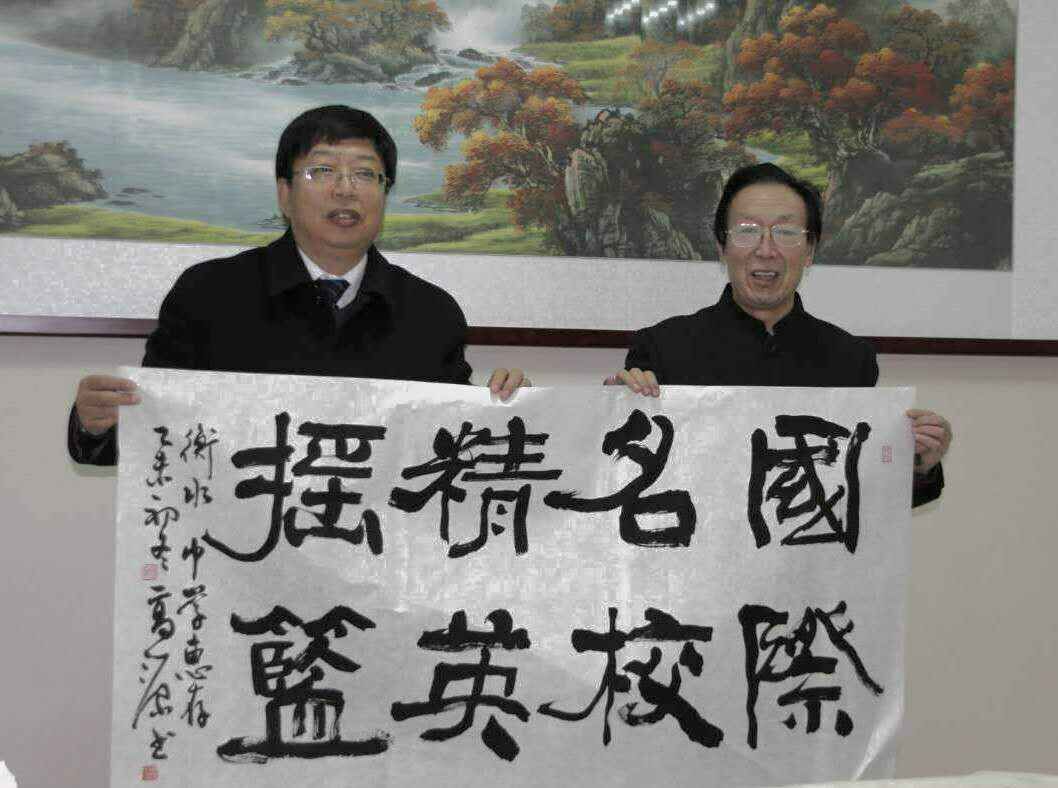 國際
名校
精英
摇籃
衡水中学惠存
乙未初冬 高
书